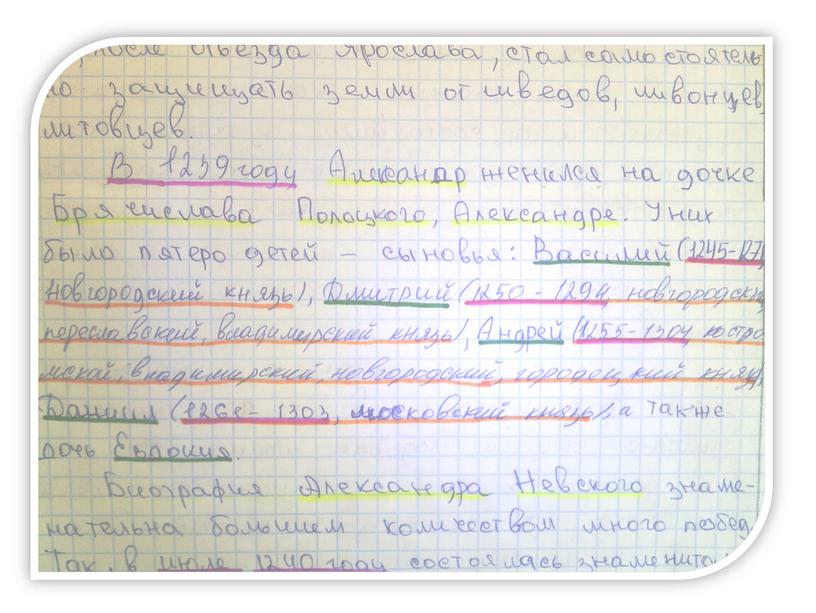 после отъезда Ярослава, стал самостоятель-
но защищать земли от шведов, ливонцев,
литовцев.
В 1239 году Александр женился на дочке
Брячислава Полоцкого, Александре. У них
было пятеро детей – сыновья: Василий (1245-127
новгородский князь), Дмитрий (1250 - 1294 новгородский
переславский, владимирский князь), Андрей (1255-1304 костро
мской, владимирский, новгородский, городецкий князь),
Даниил (1261 - 1303, московский князь), а также
дочь Евдокия.
Биография Александра Невского знаме-
нательна большием количеством много побед.
Так, в июле 1240 году состоялась знаменита